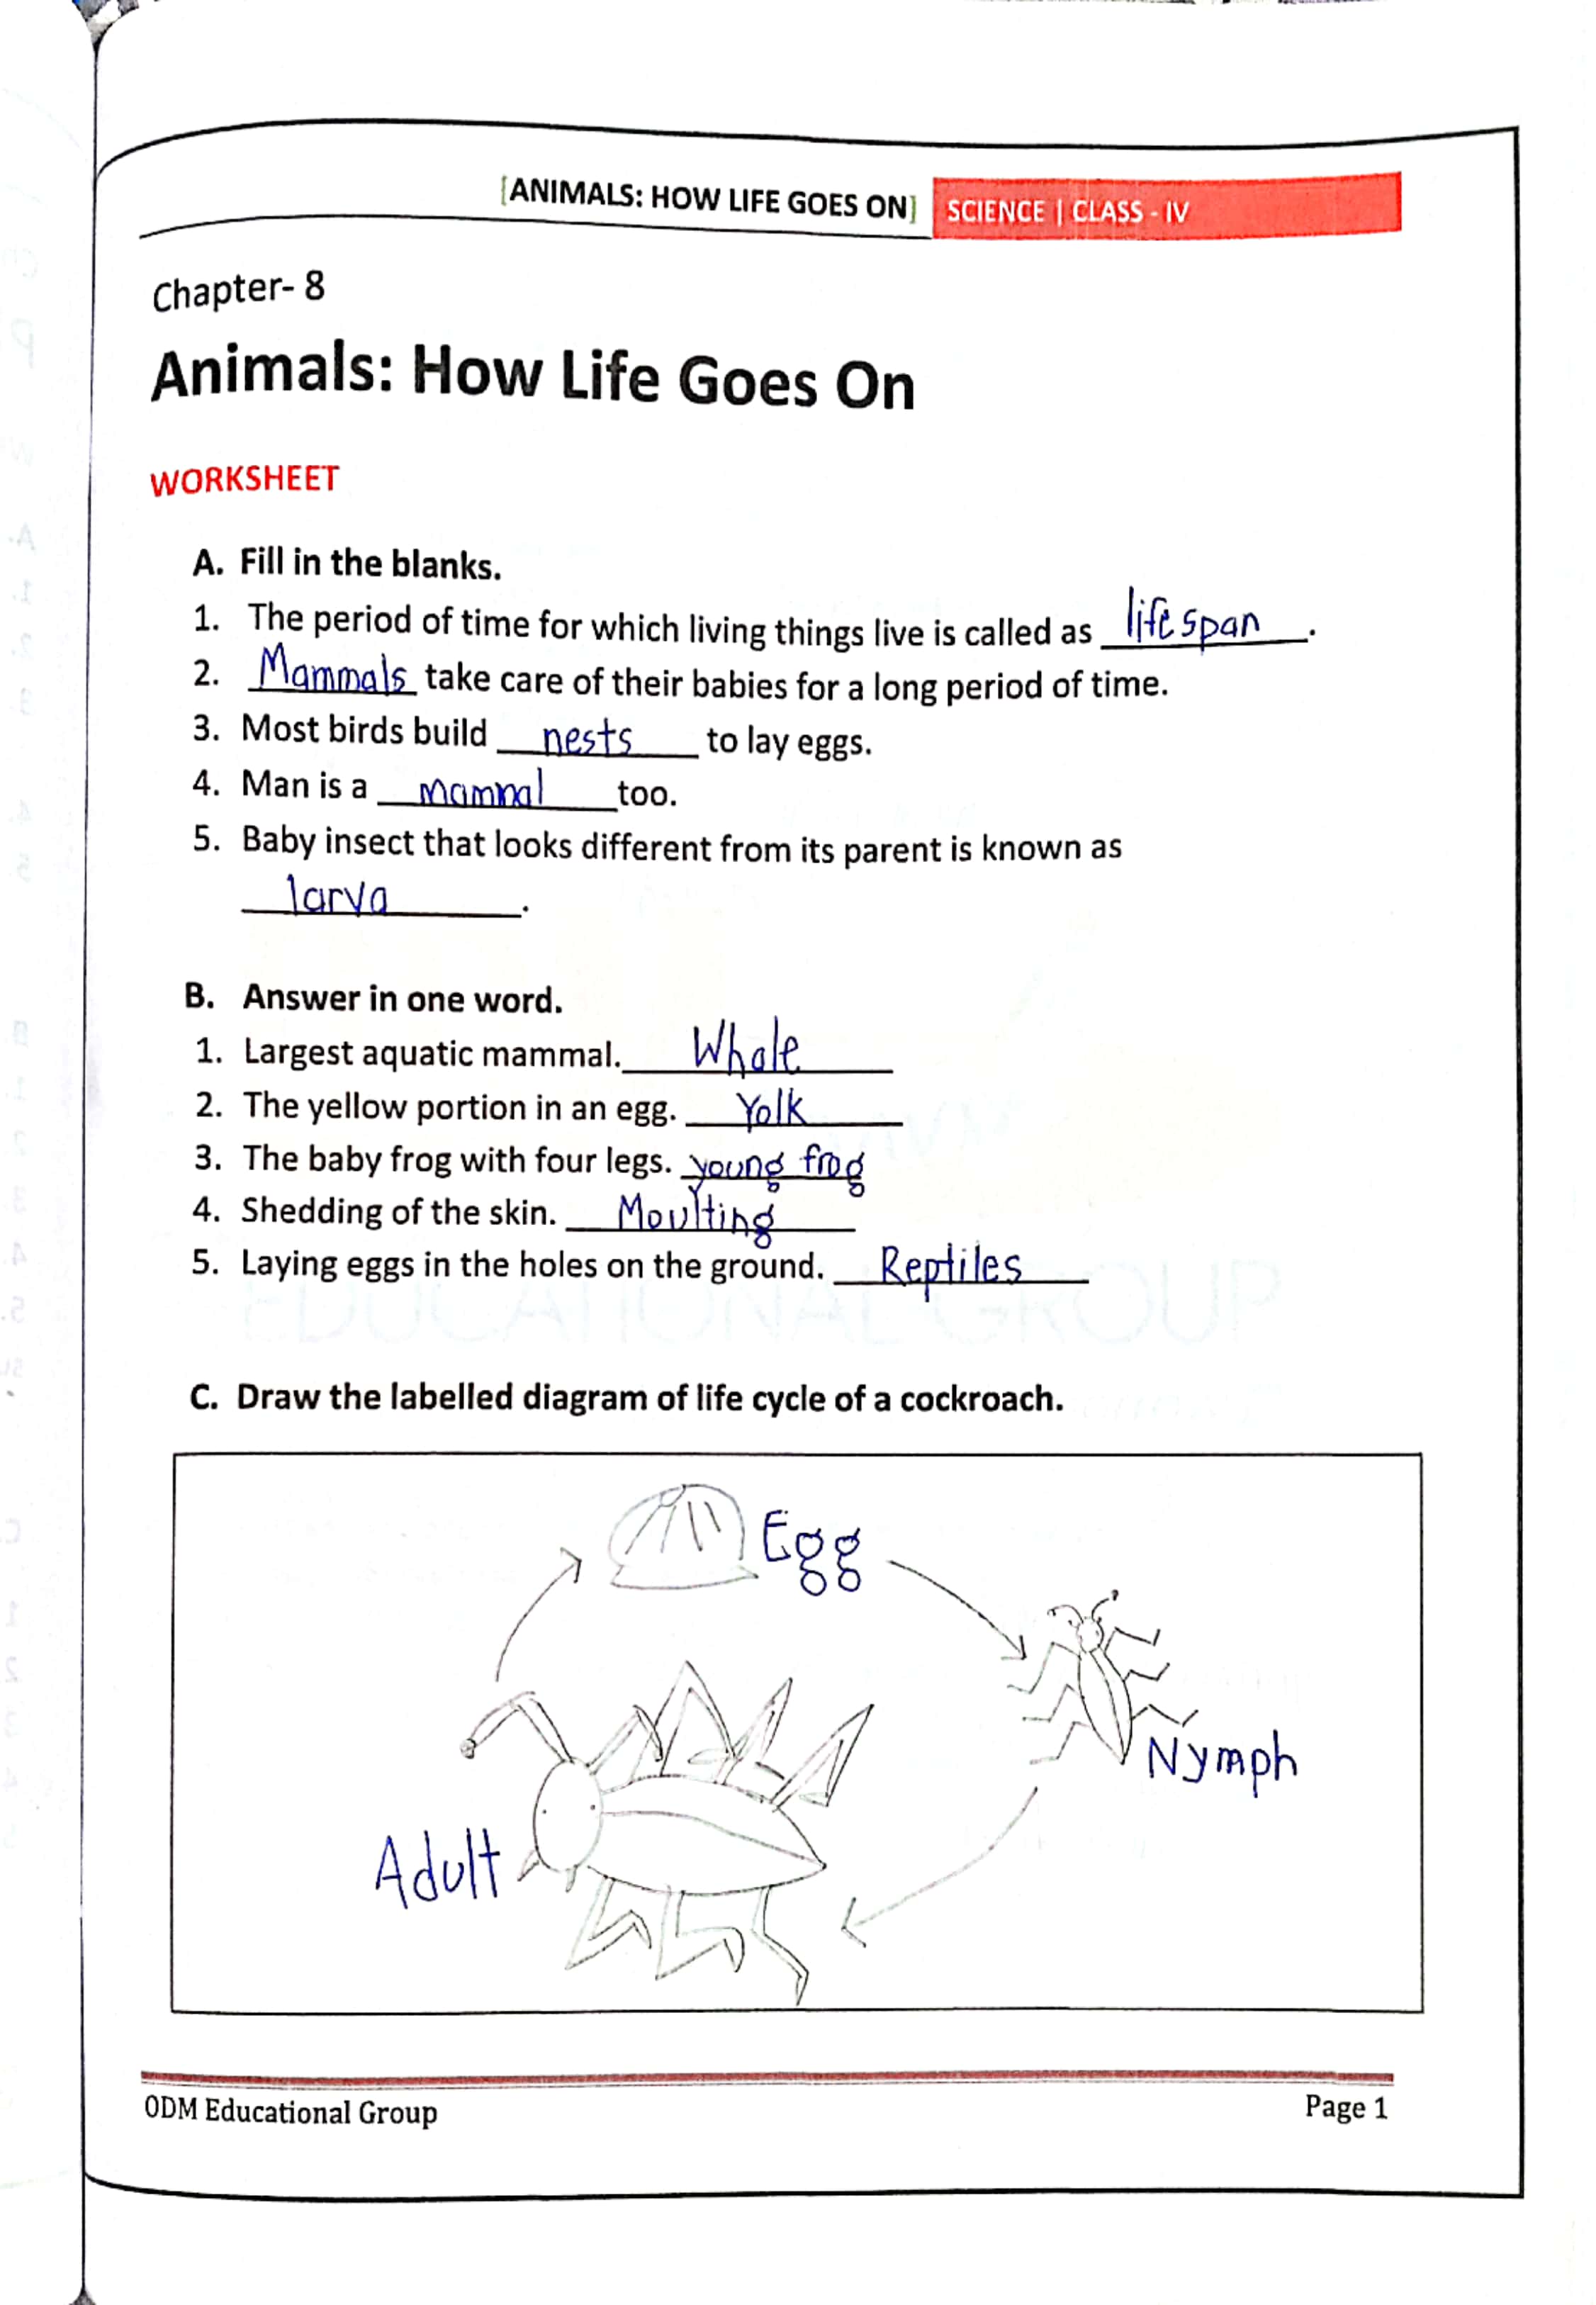 [ANIMALS: HOW LIFE GOES ON] SCIENCE | CLASS - IV
Chapter- 8
Animals: How Life Goes On
WORKSHEET
A. Fill in the blanks.
1. The period of time for which living things live is called as life span.
2. Mammals take care of their babies for a long period of time.
3. Most birds build nests to lay eggs.
4. Man is a mammal too.
5. Baby insect that looks different from its parent is known as
larva.
B. Answer in one word.
1. Largest aquatic mammal. Whale
2. The yellow portion in an egg. Yolk
3. The baby frog with four legs. young frog
4. Shedding of the skin. Moulting
5. Laying eggs in the holes on the ground. Reptiles
EDUCATIONAL GROUP
C. Draw the labelled diagram of life cycle of a cockroach.
Egg
Nymph
Adult
ODM Educational Group Page 1